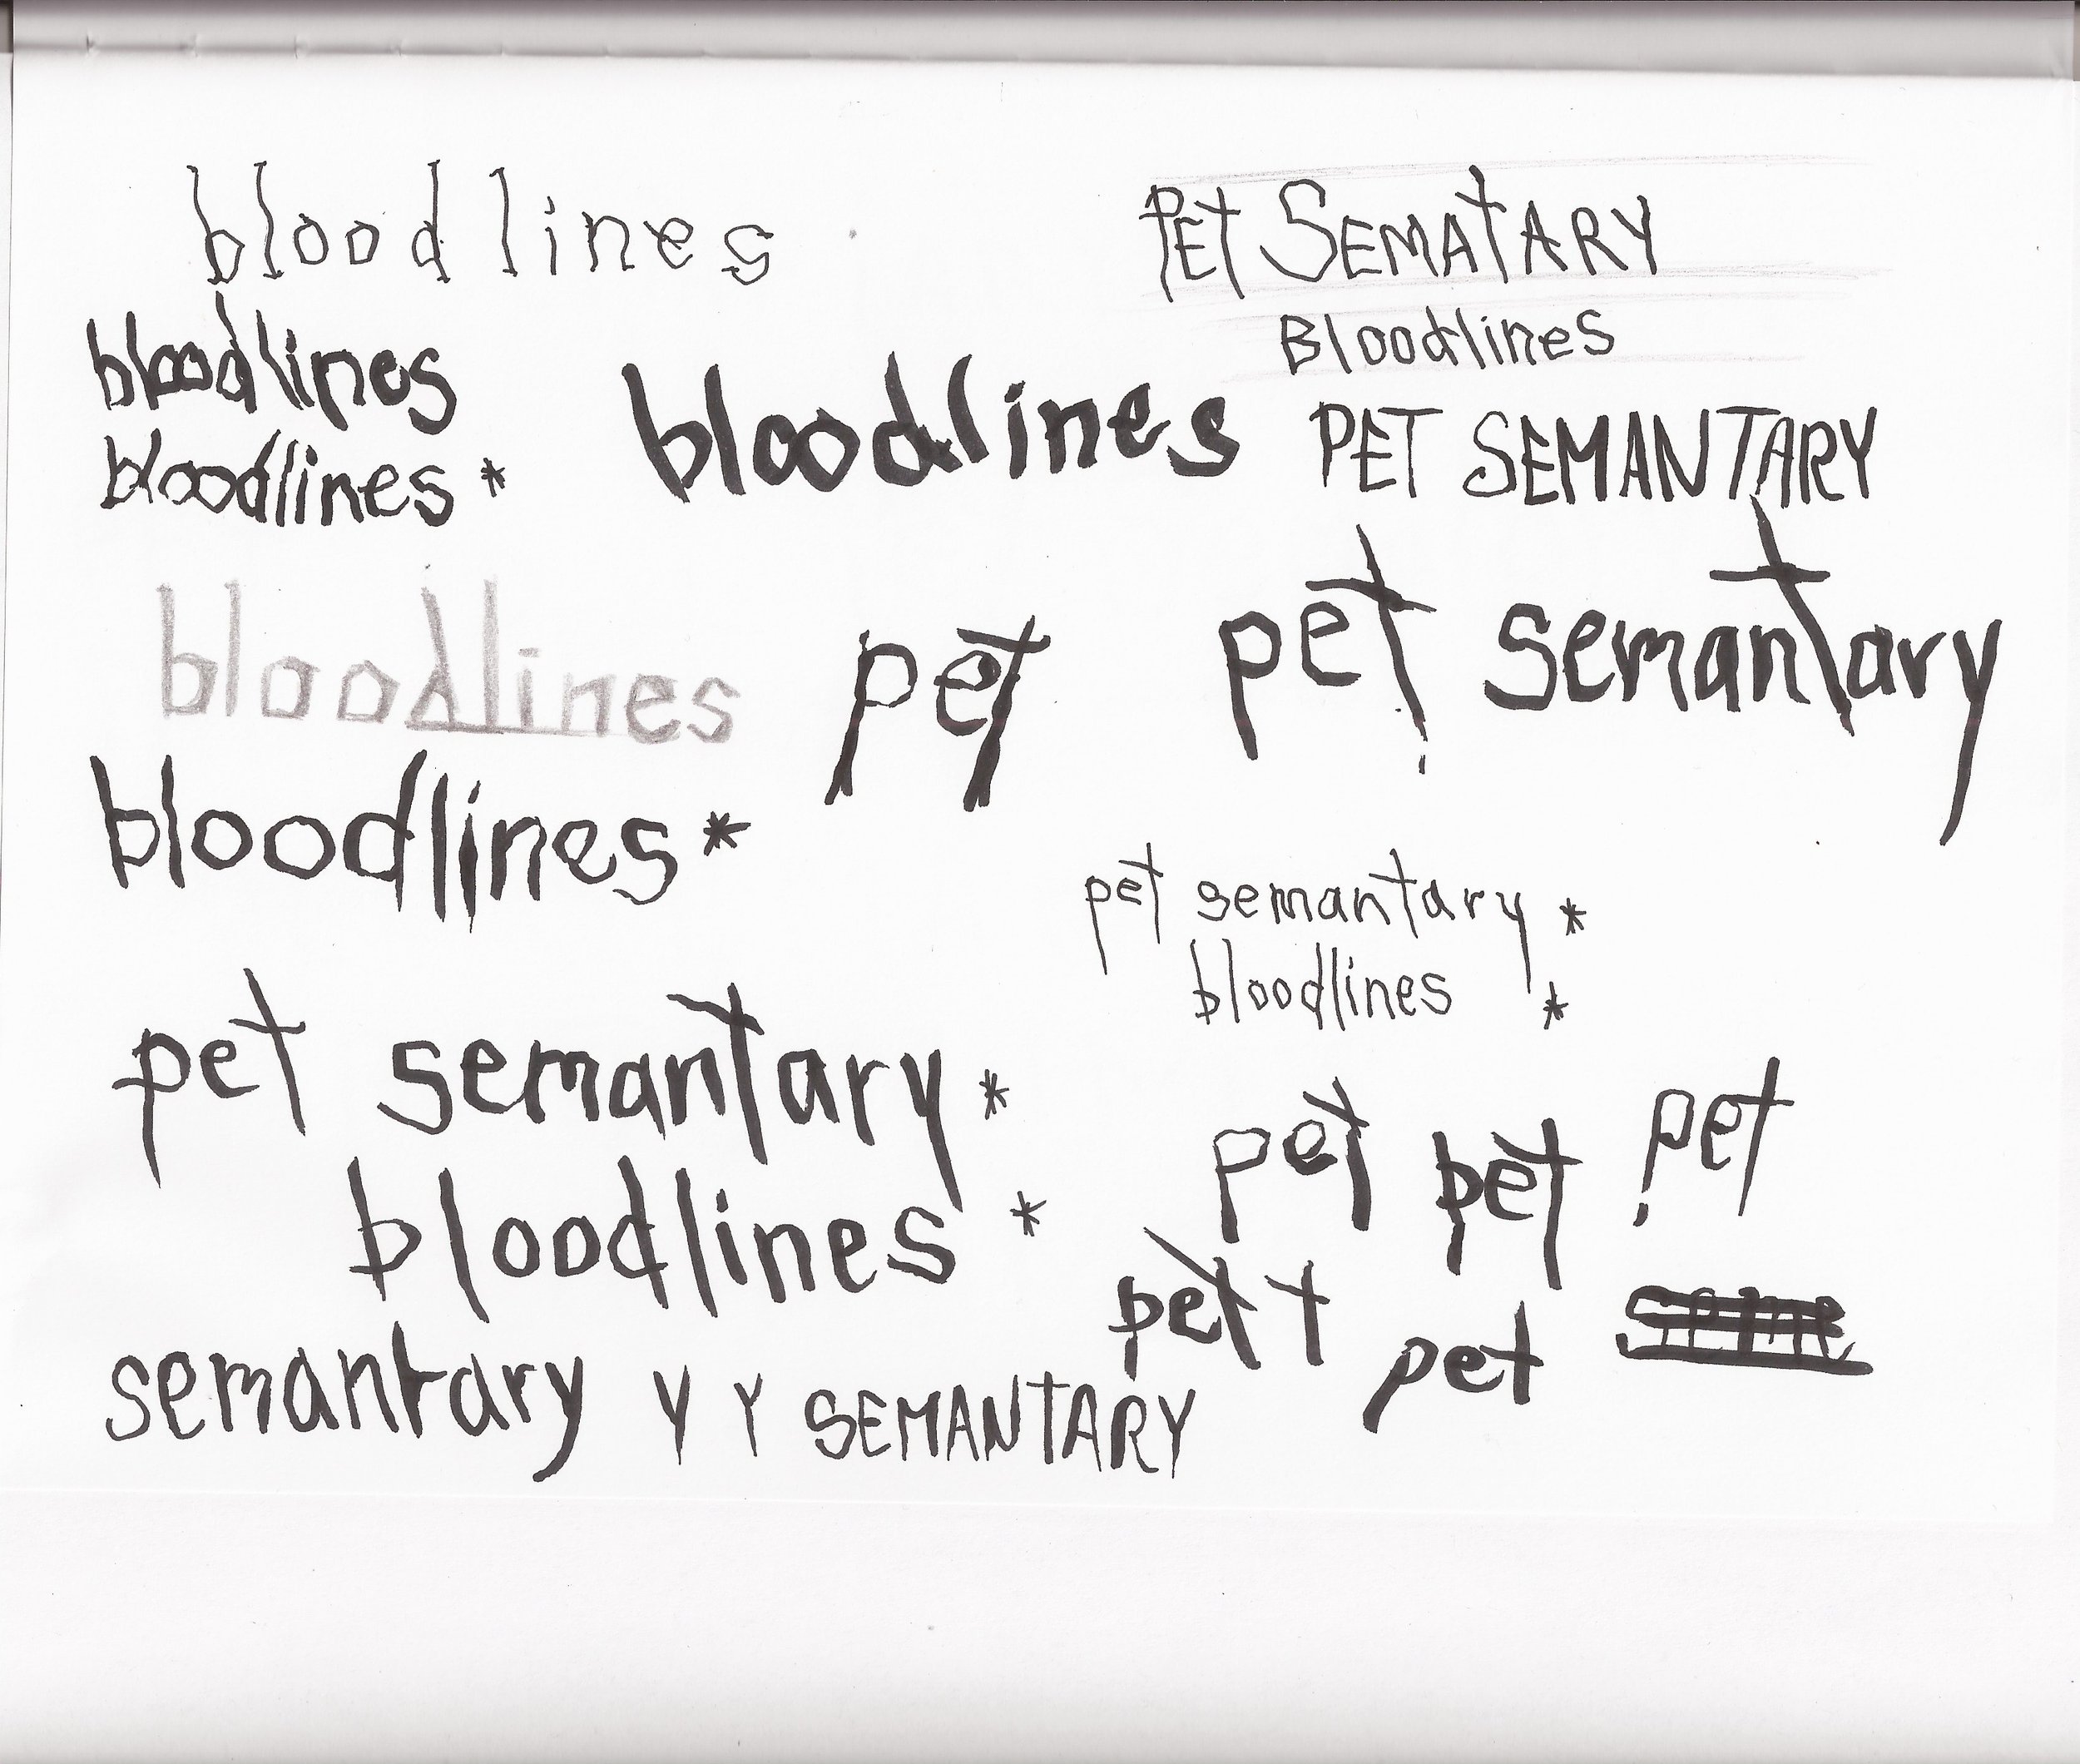 bloodlines
PET SEMATARY
bloodlines
Bloodlines
bloodlines
PET SEMANTARY
bloodlines *
pet semantary
bloodlines
pet
bloodlines *
pet semantary *
bloodlines *
pet semantary *
pet pet pet
bloodlines *
pett t
pet
semantary y Y SEMANTARY